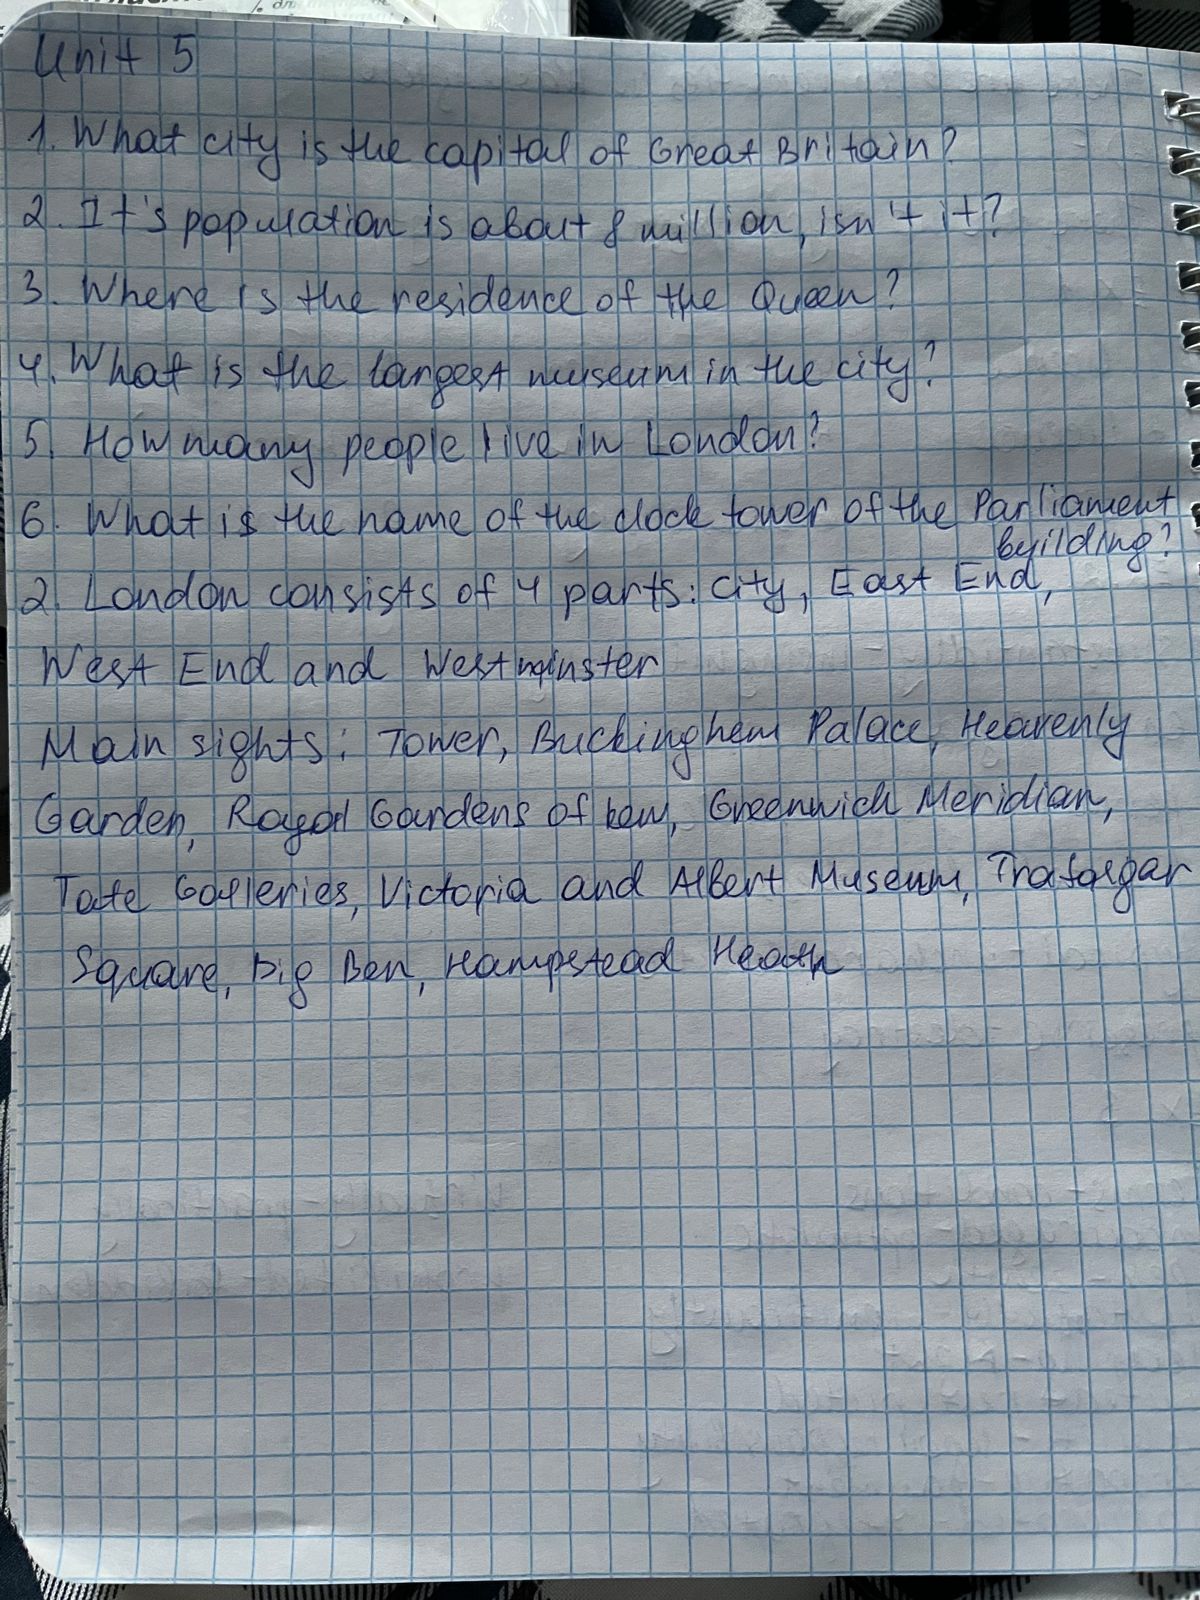 Unit 5
1. What city is the capital of Great Britain?
2. It's population is about 8 million, isn't it?
3. Where is the residence of the Queen?
4. What is the largest museum in the city?
5. How many people live in London?
6. What is the name of the clock tower of the Parliament
byilding?
2. London consists of 4 parts: City, East End,
West End and Westminster
Main sights: Tower, Buckinghem Palace, Heavenly
Garden, Royal Gardens of kew, Greenwich Meridian,
Tate Galleries, Victoria and Albert Museum, Trafalgar
Square, Big Ben, Hampstead Heath